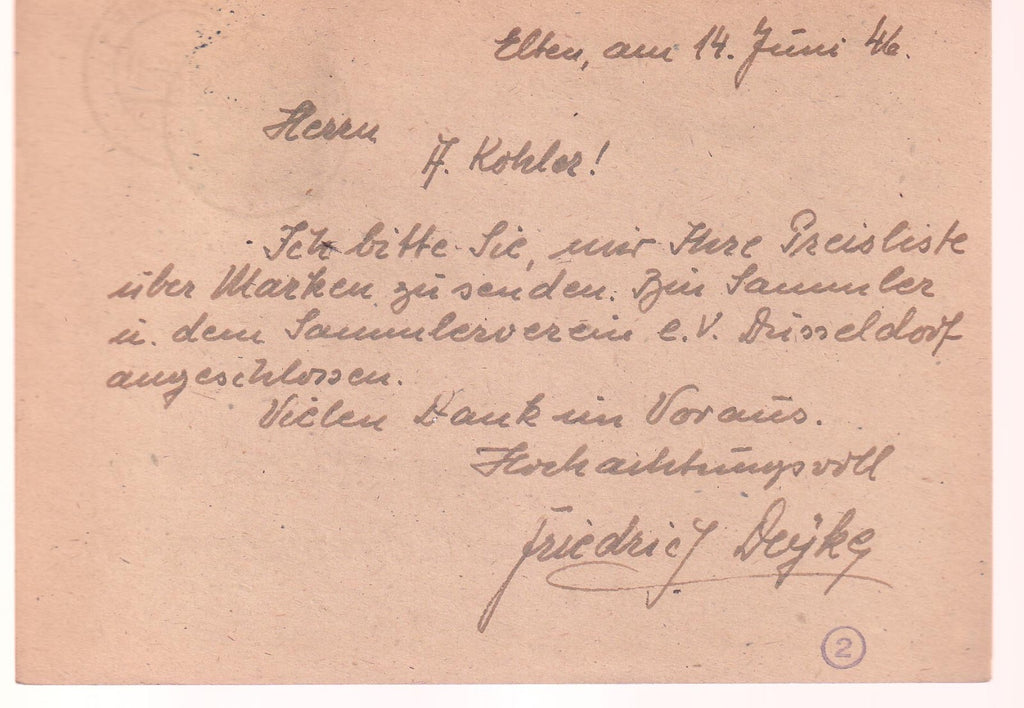 Elten, am 14. Juni 46.
Herrn
A. Kohler!
Ich bitte Sie, mir Ihre Preisliste
über Marken zu senden. Bin Sammler
u. dem Sammlerverein e.V. Düsseldorf
angeschlossen.
Vielen Dank im Voraus.
Hochachtungsvoll
Friedrich
2